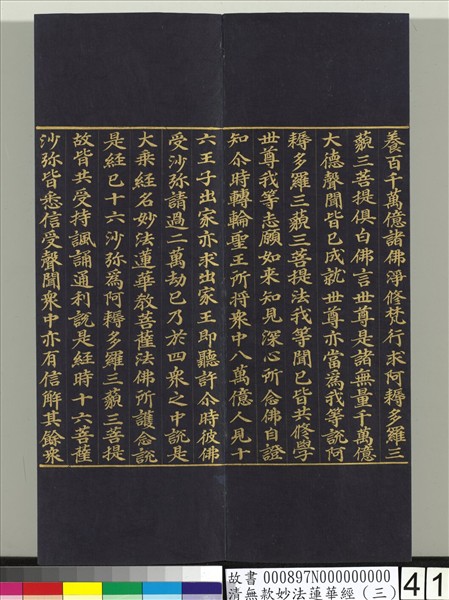 養百千萬億諸佛淨修梵行求阿耨多羅三
藐三菩提俱白佛言世尊是諸無量千萬億
大德聲聞皆已成就世尊亦當為我等說阿
耨多羅三藐三菩提法我等聞已皆共修學
世尊我等志願如來知見深心所念佛自證
知尒時轉輪聖王所將衆中八萬億人見十
六王子出家亦求出家王即聽許尒時彼佛
受沙弥請過二萬劫已乃於四衆之中說是
大乘經名妙法蓮華教菩薩法佛所護念說
是經已十六沙弥為阿耨多羅三藐三菩提
故皆共受持諷誦通利說是經時十六菩薩
沙弥皆悉信受聲聞衆中亦有信解其餘衆
故書 000897N000000000
清無款妙法蓮華經(三)
41